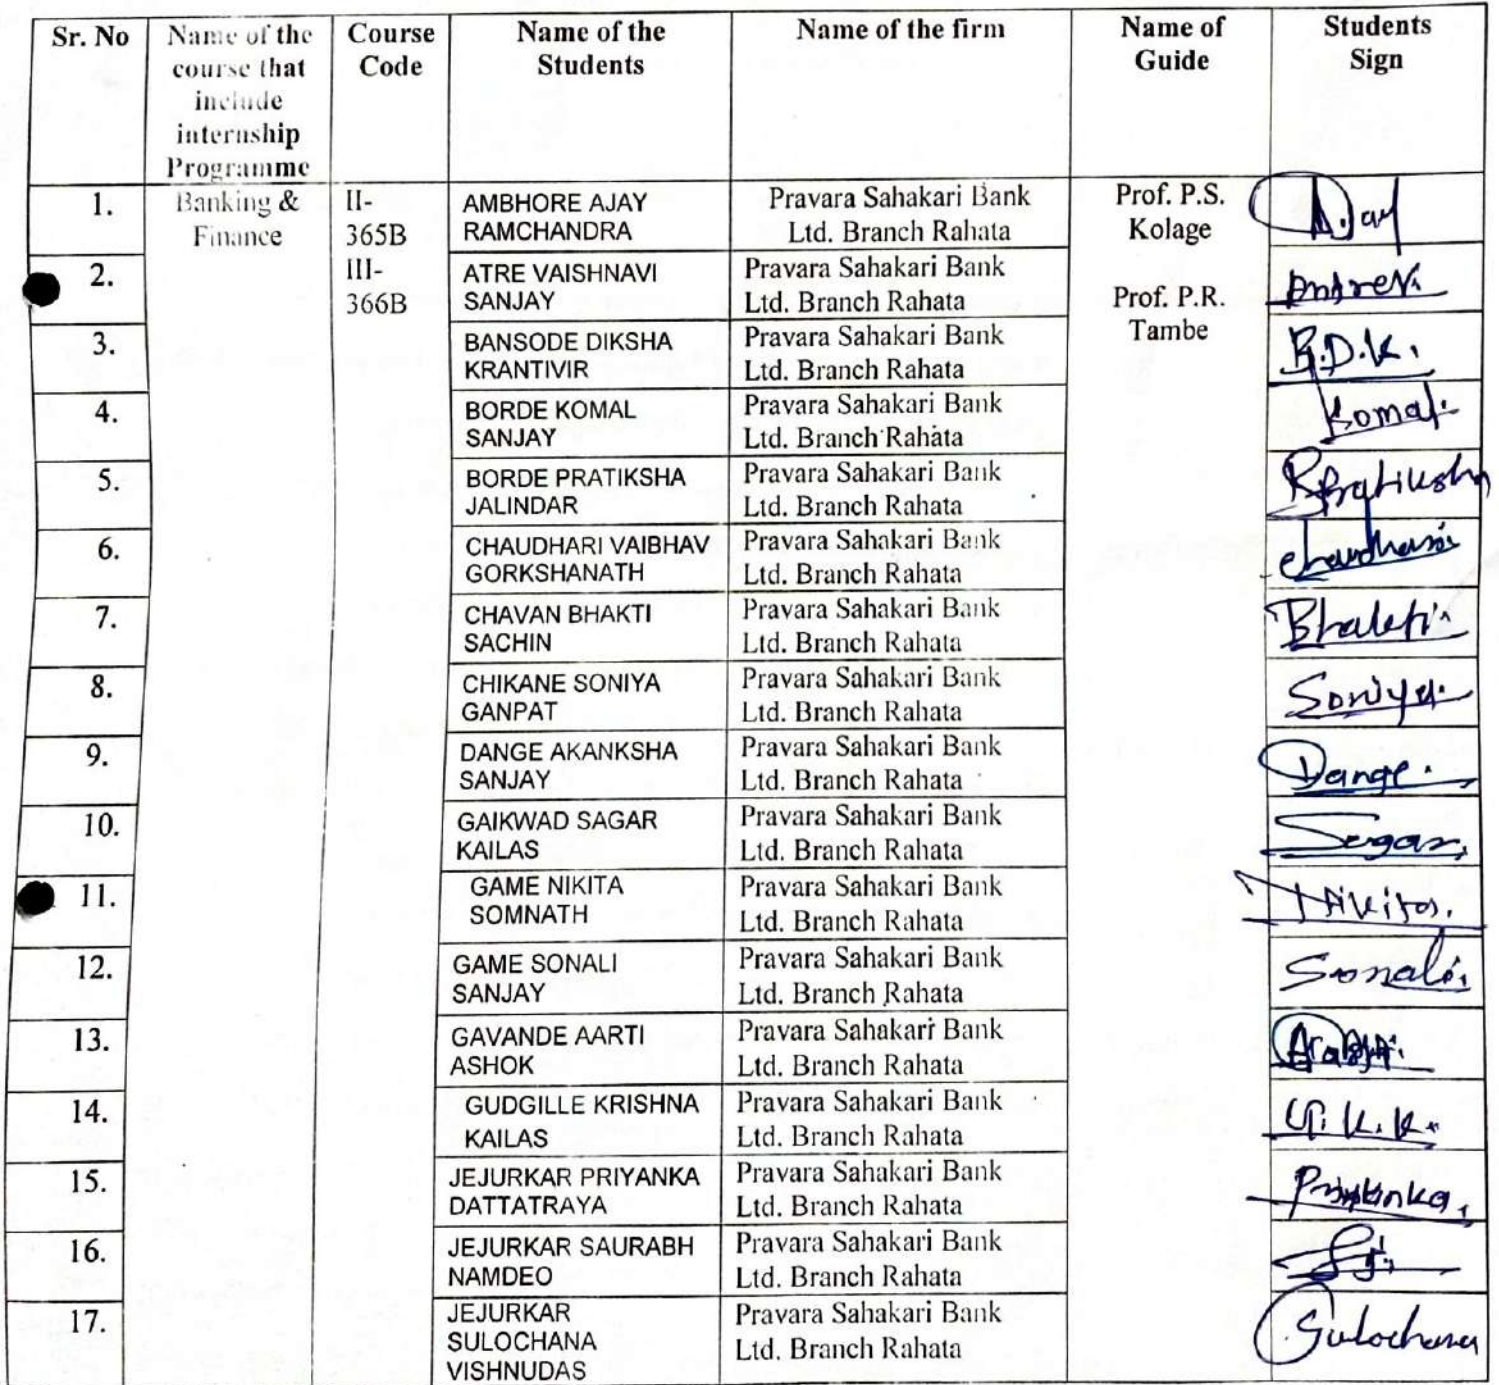 Sr. No
Name of the
course that
include
internship
Programme
Course
Code
Name of the
Students
Name of the firm
Name of
Guide
Students
Sign
1.
Banking &
Finance
II-
365B
III-
366B
AMBHORE AJAY
RAMCHANDRA
Pravara Sahakari Bank
Ltd. Branch Rahata
Prof. P.S.
Kolage
Prof. P.R.
Tambe
Ajay
2.
ATRE VAISHNAVI
SANJAY
Pravara Sahakari Bank
Ltd. Branch Rahata
3.
BANSODE DIKSHA
KRANTIVIR
Pravara Sahakari Bank
Ltd. Branch Rahata
B.D.K.
4.
BORDE KOMAL
SANJAY
Pravara Sahakari Bank
Ltd. Branch Rahata
Komal.
5.
BORDE PRATIKSHA
JALINDAR
Pravara Sahakari Bank
Ltd. Branch Rahata
BPratiksha
6.
CHAUDHARI VAIBHAV
GORKSHANATH
Pravara Sahakari Bank
Ltd. Branch Rahata
Chaudhari
7.
CHAVAN BHAKTI
SACHIN
Pravara Sahakari Bank
Ltd. Branch Rahata
Bhakti.
8.
CHIKANE SONIYA
GANPAT
Pravara Sahakari Bank
Ltd. Branch Rahata
Soniya.
9.
DANGE AKANKSHA
SANJAY
Pravara Sahakari Bank
Ltd. Branch Rahata
Dange.
10.
GAIKWAD SAGAR
KAILAS
Pravara Sahakari Bank
Ltd. Branch Rahata
Sagar.
11.
GAME NIKITA
SOMNATH
Pravara Sahakari Bank
Ltd. Branch Rahata
Nikita.
12.
GAME SONALI
SANJAY
Pravara Sahakari Bank
Ltd. Branch Rahata
Sonali.
13.
GAVANDE AARTI
ASHOK
Pravara Sahakari Bank
Ltd. Branch Rahata
14.
GUDGILLE KRISHNA
KAILAS
Pravara Sahakari Bank
Ltd. Branch Rahata
G.K.K.
15.
JEJURKAR PRIYANKA
DATTATRAYA
Pravara Sahakari Bank
Ltd. Branch Rahata
Priyanka.
16.
JEJURKAR SAURABH
NAMDEO
Pravara Sahakari Bank
Ltd. Branch Rahata
17.
JEJURKAR
SULOCHANA
VISHNUDAS
Pravara Sahakari Bank
Ltd. Branch Rahata
Sulochana